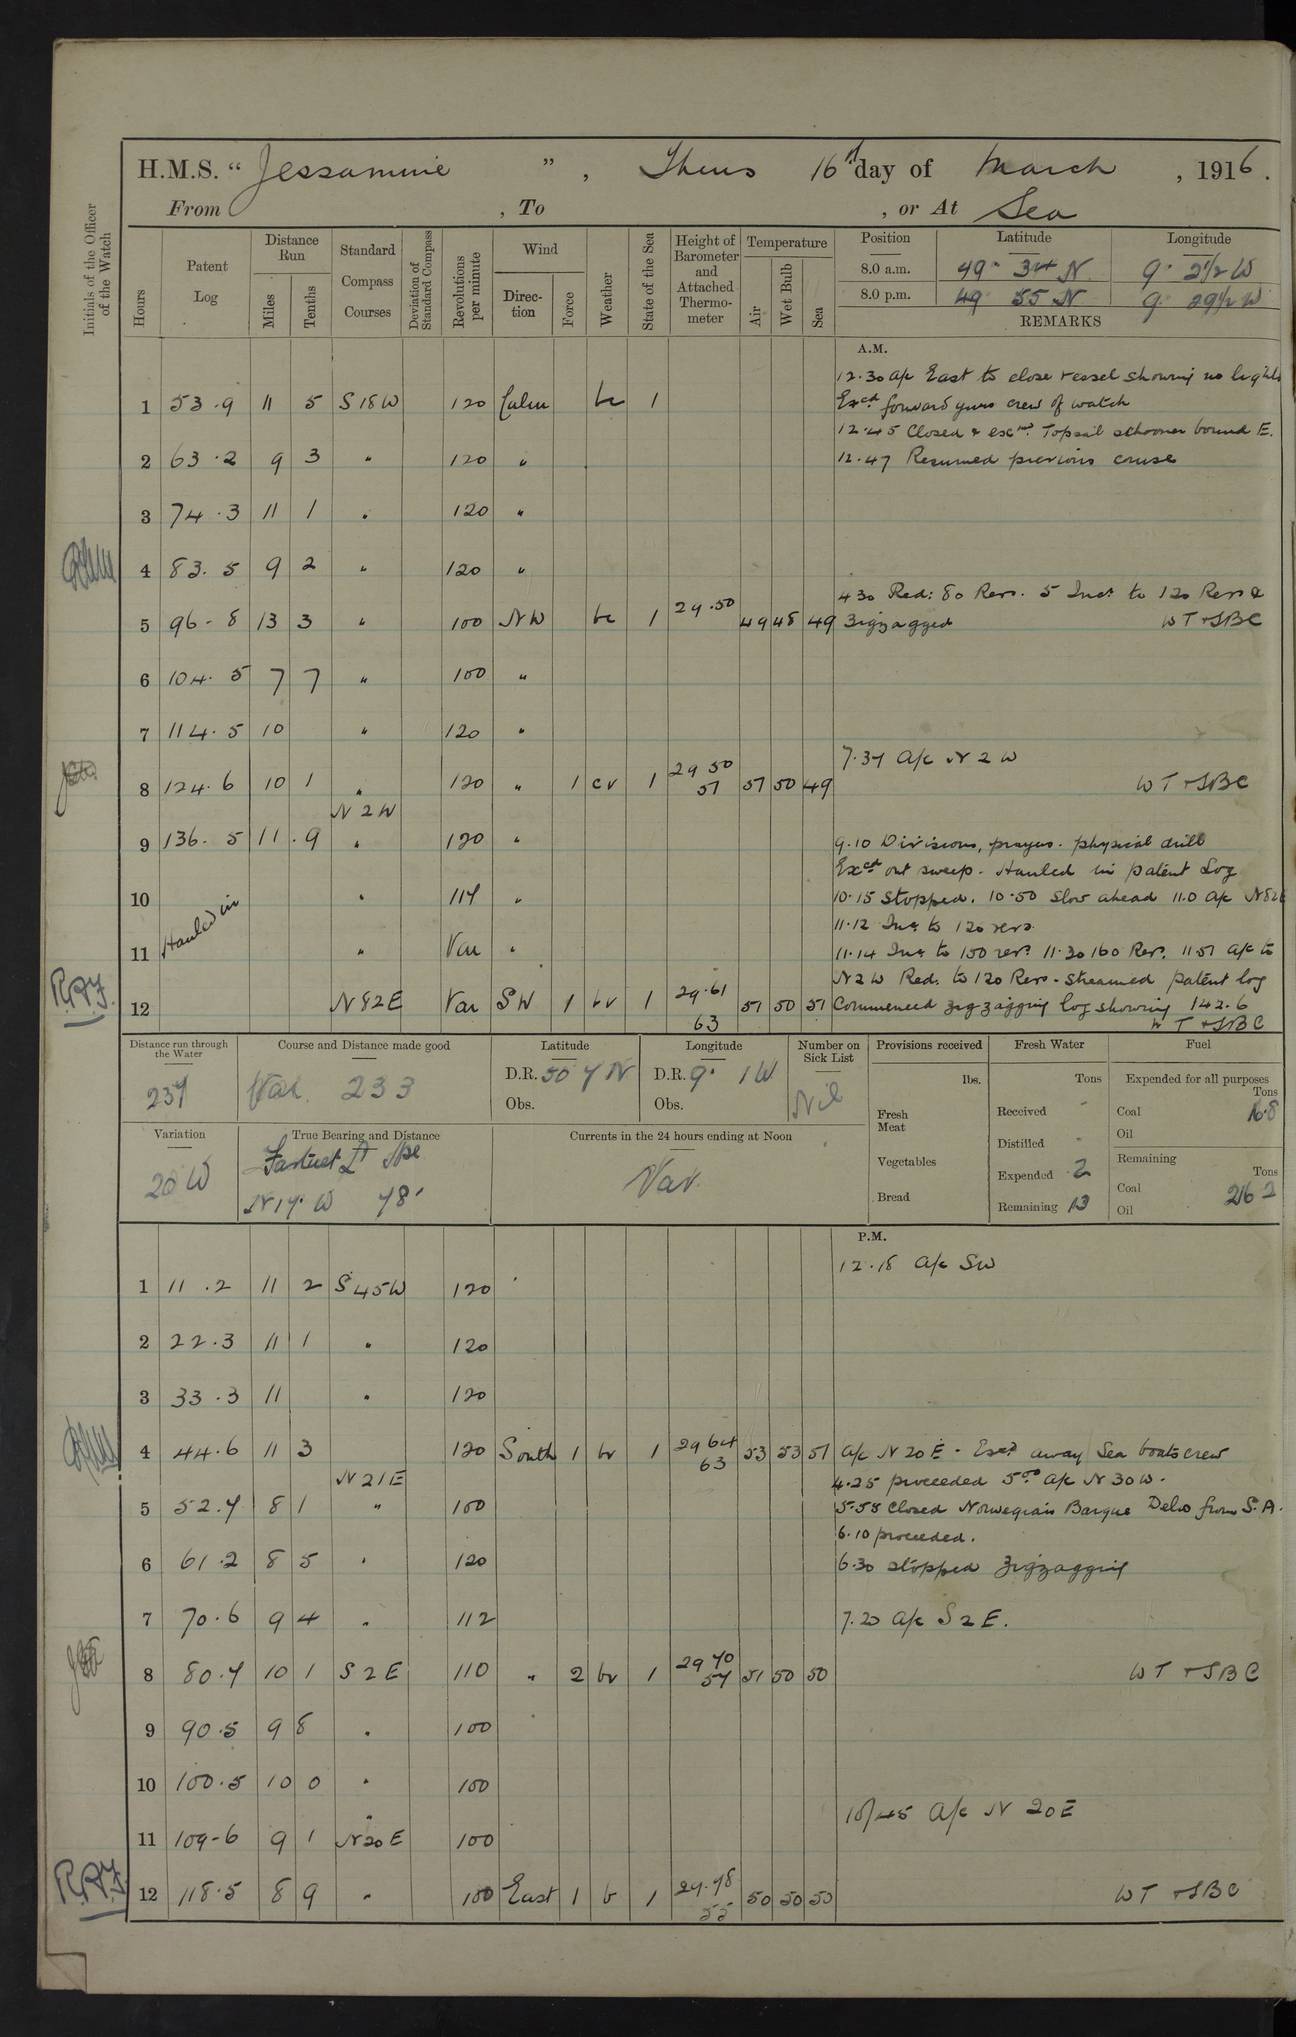 H.M.S. “ Jessamine ” , Thurs 16th day of March , 1916 .
From , To , or At Sea
Initials of the Officer of the Watch
Hours
Patent Log
Distance Run
Miles
Tenths
Standard Compass Courses
Deviation of Standard Compass
Revolutions per minute
Wind
Direction
Force
Weather
State of the Sea
Height of Barometer and Attached Thermometer
Temperature
Air
Wet Bulb
Sea
Position Latitude Longitude
8.0 a.m. 49° 34 N 9° 2½ W
8.0 p.m. 49 55 N 9 29½ W
REMARKS
A.M.
12.30 a/c East to close vessel showing no lights
1 53.9 11 5 S18W 120 Calm bc 1 Excd forward guns crew of watch
12.45 Closed & exmd. Topsail schooner bound E.
2 63.2 9 3 " 120 " 12.47 Resumed previous course
3 74.3 11 1 " 120 "
4 83.5 9 2 " 120 "
4 30 Red: 80 Revs. 5 Incd to 120 Revs &
5 96-8 13 3 " 100 NW bc 1 29.50 49 48 49 Zigzagged WT & SBC
6 104.5 7 7 " 100 "
7 114.5 10 " 120 "
7.37 A/c N 2 W
8 124.6 10 1 " 120 " 1 cv 1 29 50 51 51 50 49 WT & SBC
N 2 W
9 136.5 11.9 " 120 " 9.10 Divisions, prayers. physical drill
Excd out sweep. Hauled in patent Log
10 Hauled in " 114 " 10.15 Stopped. 10.50 slow ahead 11.0 a/c N82E
11.12 Inc to 120 revs
11 " Var " 11.14 Inc to 150 revs 11.30 160 Revs. 11 51 a/c to
N2W Red. to 120 Revs - Streamed patent log
12 N82E Var SW 1 bv 1 29.61 63 51 50 51 Commenced zigzagging log showing 142.6
WT & SBC
Distance run through the Water 237
Course and Distance made good Var. 233
Latitude D.R. 50 7 N Obs.
Longitude D.R. 9° 1 W Obs.
Number on Sick List Nil
Provisions received
lbs.
Fresh Meat
Vegetables
Bread
Fresh Water
Tons
Received -
Distilled -
Expended 2
Remaining 13
Fuel
Expended for all purposes
Tons
Coal 16.8
Oil
Remaining
Tons
Coal 216 2
Oil
Variation 20 W
True Bearing and Distance Fastnet Lt Hse
N17°W 78'
Currents in the 24 hours ending at Noon
Var.
P.M.
12.18 a/c SW
1 11.2 11 2 S45W 120
2 22.3 11 1 " 120
3 33.3 11 " 120
4 44.6 11 3 120 South 1 bv 1 29 64 63 53 53 51 a/c N 20 E - Excd away Sea boats crew
N21E 4.25 proceeded 5.00 a/c N 30 W.
5 52.7 8 1 " 100 5.58 Closed Norwegian Barque from S.A.
6.10 proceeded.
6 61.2 8 5 " 120 6.30 stopped zigzagging
7 70.6 9 4 " 112 7.20 a/c S 2 E.
8 80.7 10 1 S 2 E 110 " 2 bv 1 29 70 57 51 50 50 WT & SBC
9 90.5 9 8 " 100
10 100.5 10 0 " 100
10/45 A/c N 20E
11 109-6 9 1 N20E 100
12 118.5 8 9 " 100 East 1 b 1 29.78 55 50 50 50 WT & SBC